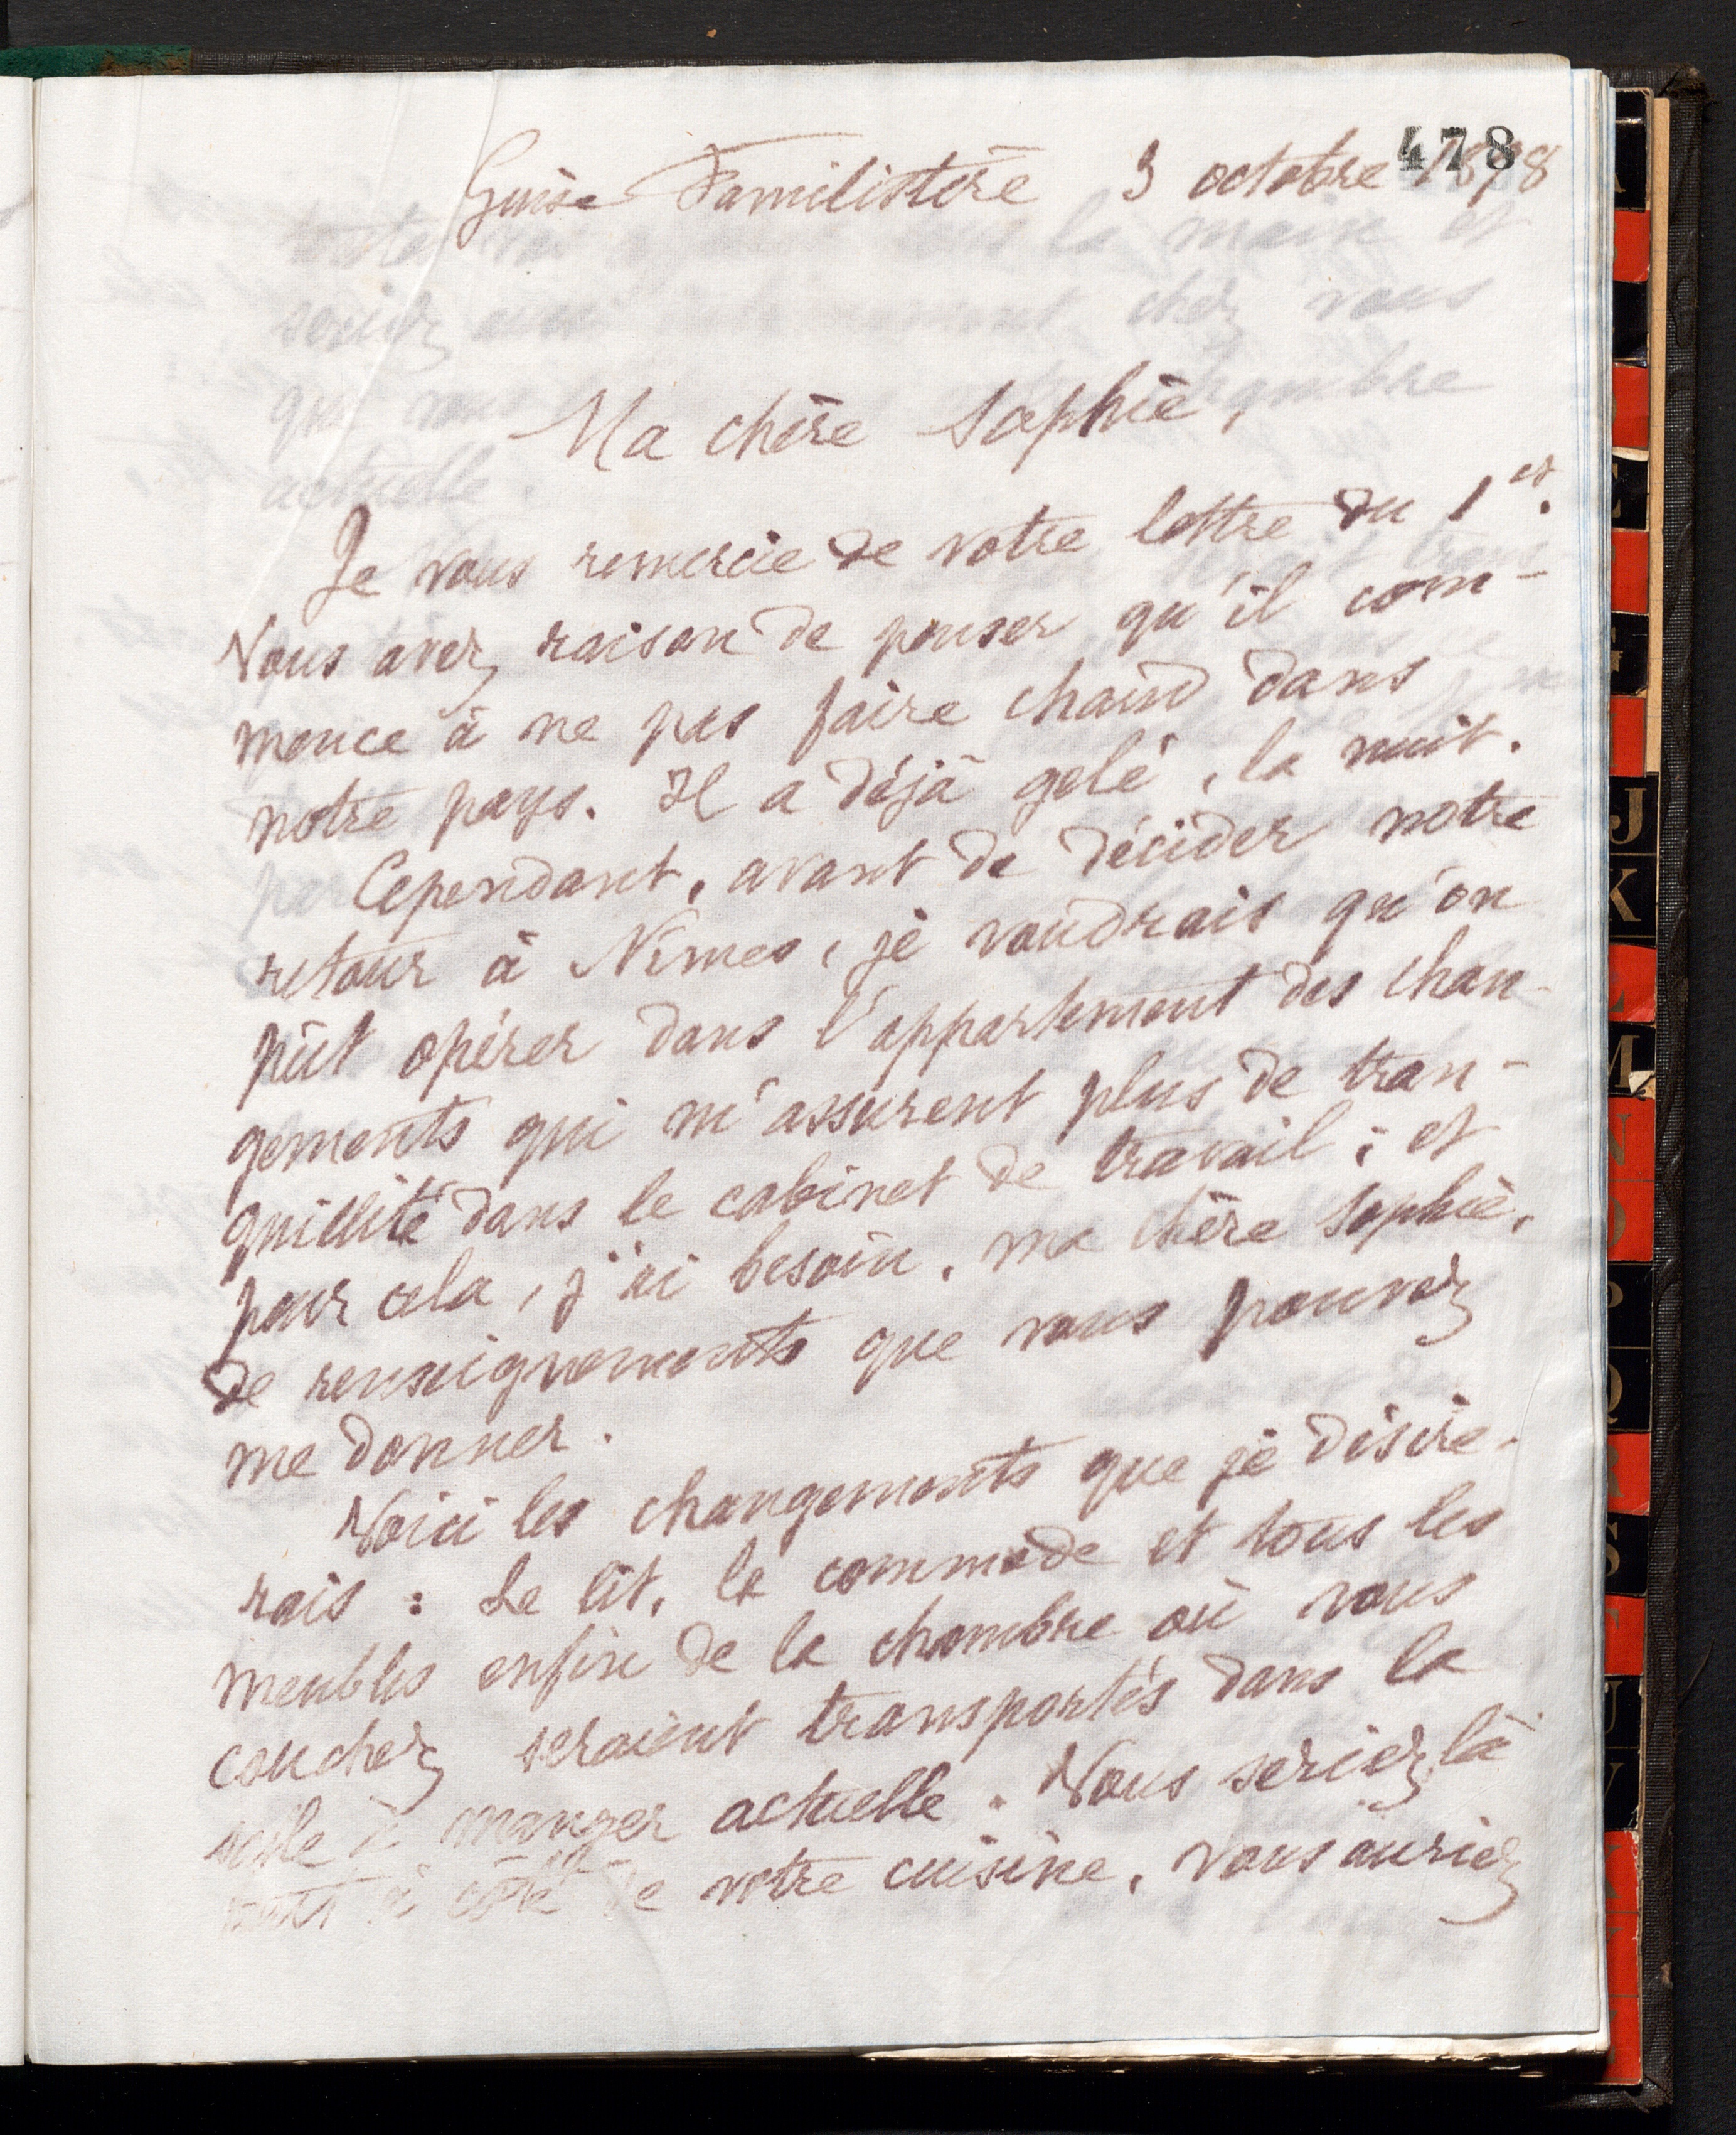 478
Guise Familistère 3 octobre 1898
Ma chère Sophie,
Je vous remercie de votre lettre du 1er.
Vous avez raison de penser qu'il com-
mence à ne pas faire chaud dans
notre pays. Il a déjà gelé, la nuit.
Cependant, avant de décider notre
retour à Nîmes, je voudrais qu'on
pût opérer dans l'appartement des chan-
gements qui m'assurent plus de tran-
quillité dans le cabinet de travail ; et
pour cela, j'ai besoin, ma chère Sophie,
de renseignements que vous pouvez
me donner.
Voici les changements que je désire-
rais : Le lit, la commode et tous les
meubles enfin de la chambre où vous
couchez seraient transportés dans la
salle à manger actuelle. Vous seriez là
tout à côté de votre cuisine, vous auriez
J
K
L
M
N
O
P
Q
R
S
T
U
V